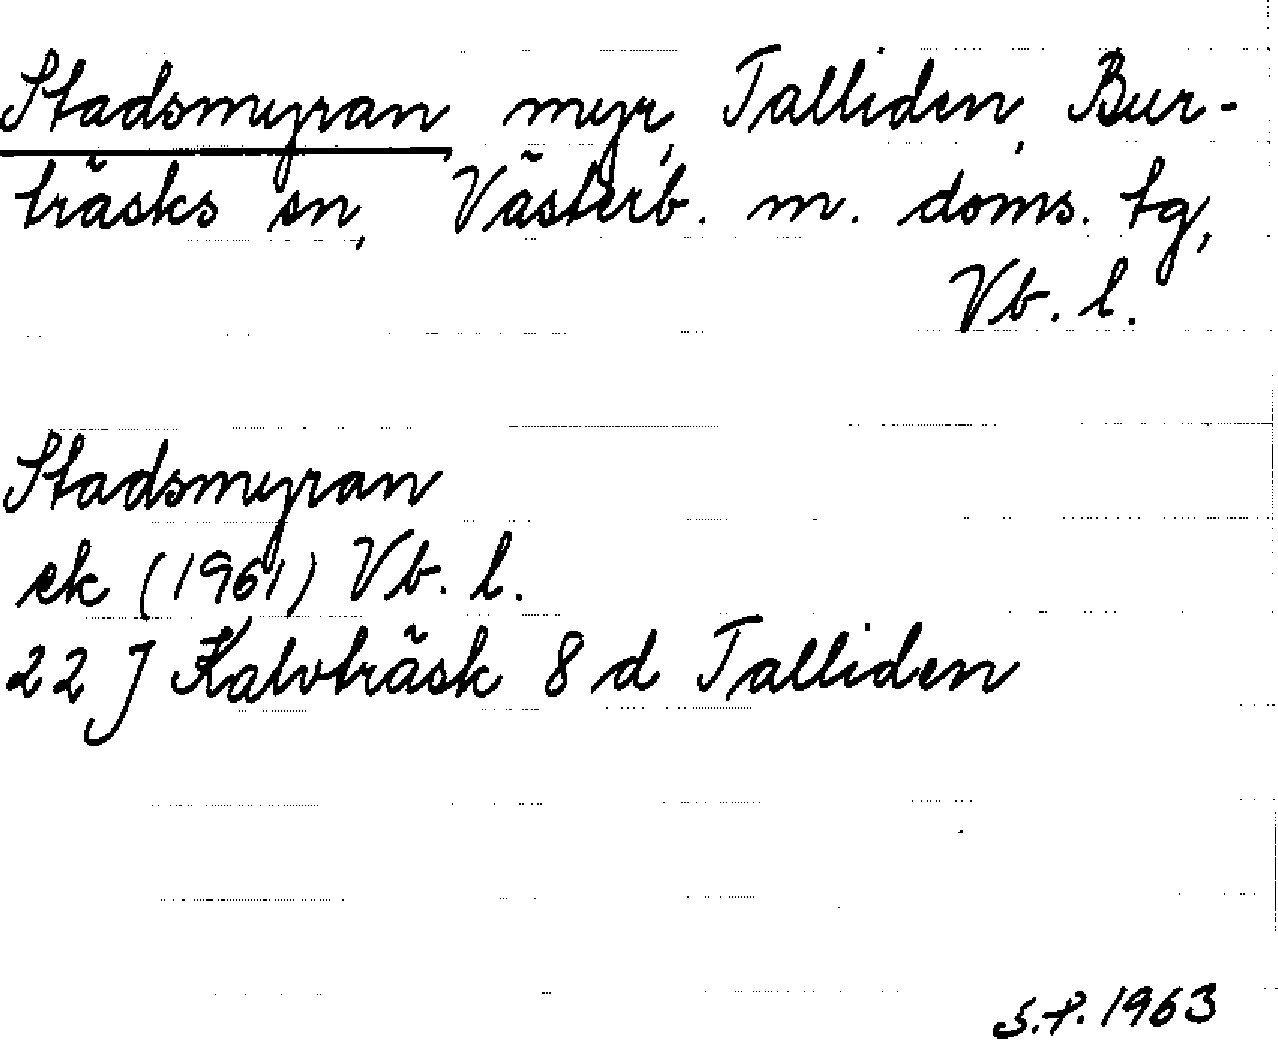 Stadsmyran myr, Talliden, Bur-
träsks sn, Västerb. m. doms. tg,
Vb. l.
Stadsmyran
ek (1961) Vb. l.
22 J Kalvträsk 8 d Talliden
S.P. 1963